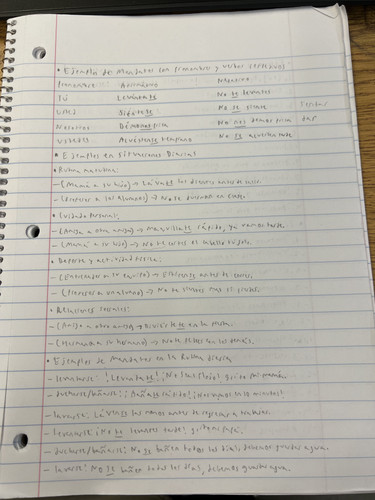 • Ejemplos de mandatos con pronombres y verbos reflexivos
Pronombre Afirmativo Negativo
Tú Levántate No te levantes
Usted Siéntese No se siente Sentar
Nosotros Démonos prisa No nos demos prisa dar
Ustedes Acuéstense temprano No se acuesten tarde
• Ejemplos en situaciones Diarias
• Rutina matutina:
- (Mamá a su hijo) → Lávate los dientes antes de
- (Profesor a los alumnos) → No se duerman en clase.
• Cuidado Personal:
- (Amiga a otra amiga) → Maquíllate rápido, ya vamos tarde.
- (Mamá a su hijo) → No te cortes el cabello tú solo.
• Deporte y actividad física:
- (Entrenador a su equipo) → Estírense antes de correr.
- (Profesor a un alumno) → No te sientes
• Relaciones sociales:
- (Amiga a otra amiga) → Diviértete en la fiesta.
- (Hermana a su hermano) → No te
• Ejemplos de Mandatos en la Rutina Diaria
- levantarse: ¡Levántate! ¡No seas flojo! gritó mi mamá.
- ducharse/bañarse: ¡Báñate rápido! ¡Nos vamos en 10 minutos!
- lavarse: Lávense las manos antes de
- Levantarse: ¡No te levantes tarde!
- ducharse/bañarse: No se bañen todos los días, debemos guardar agua.
- lavarse: No se bañen todos los días, debemos guardar agua.